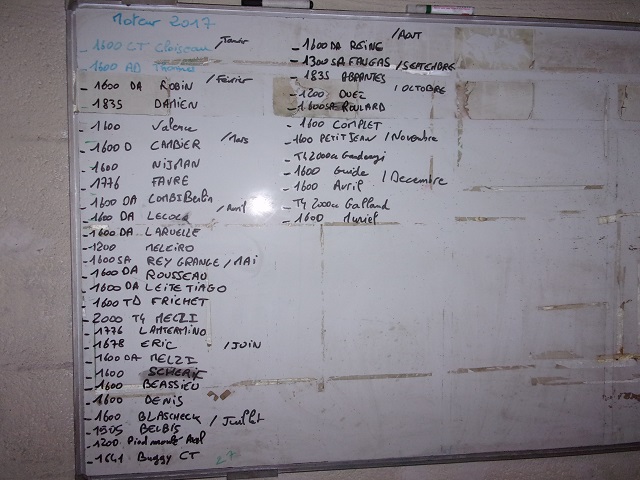 Moteur 2017
- 1600 CT Cloiseau / Janvier
- 1600 AD Thomas
- 1600 DA ROBIN / Février
- 1835 DAMIEN
- 1600 Valence
- 1600 D CAMBIER / Mars
- 1600 NIJMAN
- 1776 FAVRE
- 1600 DA COMBI Berlin
- 1600 DA LECOCQ / Avril
- 1600 DA LARUELLE
- 1200 MELEIRO
- 1600 SA REY GRANGE / MAI
- 1600 DA ROUSSEAU
- 1600 DA LEITE TIAGO
- 1600 TD FRICHET
- 2000 T4 MELZI
- 1776 LANTERMINO
- 1678 ERIC / JUIN
- 1600 DA MELZI
- 1600
- 1600 BEASSIEU
- 1600 DENIS
- 1600 BLASCHECK / Juillet
- 1505 BELBIS
- 1200 Axel
- 1641 Buggy CT 27
/ AOUT
- 1600 DA REINE
- 1300 SA FAUGAS / SEPTEMBRE
- 1835 ABRANTES
- 1200 DUEZ / OCTOBRE
- 1600 SA ROULARD
- 1600 COMPLET
- 1600 PETITJEAN / Novembre
- T4 2000cc
- 1600 Guide
- 1600 Avril / Decembre
- T4 2000cc Galland
- 1600 Muriel